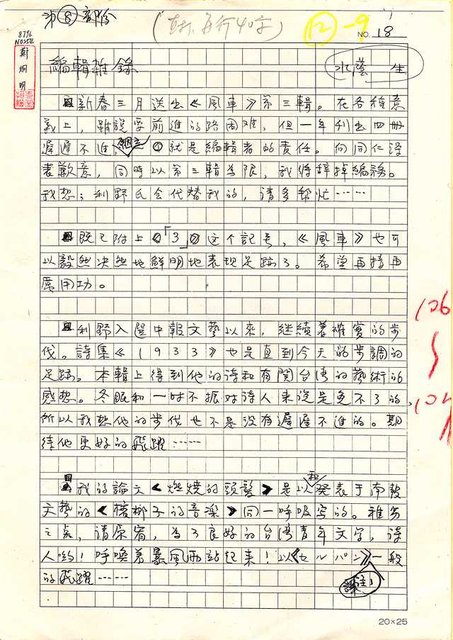 第⑧部份
(                行40字)
⑫-9
NO. 18
編輯雜錄
水蔭生
新春三月送出《風車》第三輯。在各種意
義上,雖說要前進的路困難,但一年刊出四冊
遲遲不進 就是編輯者的責任。向同仁讀
者歉意,同時以第三輯為限,我將辭掉編務。
我想:利野氏會代替我的,請多幫忙……
既已附上「3」這个記号,《風車》也可
以毅然決然地鮮明地表現足跡了。希望再接再
厲用功。
利野入選中報文藝以來,繼續著確實的步
伐。詩集《1933》也是直到今天的步調的
足跡。本輯上得到他的詩和有関台湾的藝術的
感想。冬眠和一時不振對詩人來說是免不了的
所以我想他的步伐也不是沒有遲遲不進的。期
待他更好的飛躍……
我的論文《燃燒的頭髮》是以和發表于南報
文藝的《檳榔子的音樂》同一呼吸寫的。雅芳
之處,請原宥,為了良好的台湾青年文学,詩
人喲!呼喚著暴風雨站起來!以《セルパン》一般
的飛躍……
譯注1
106
107
20×25